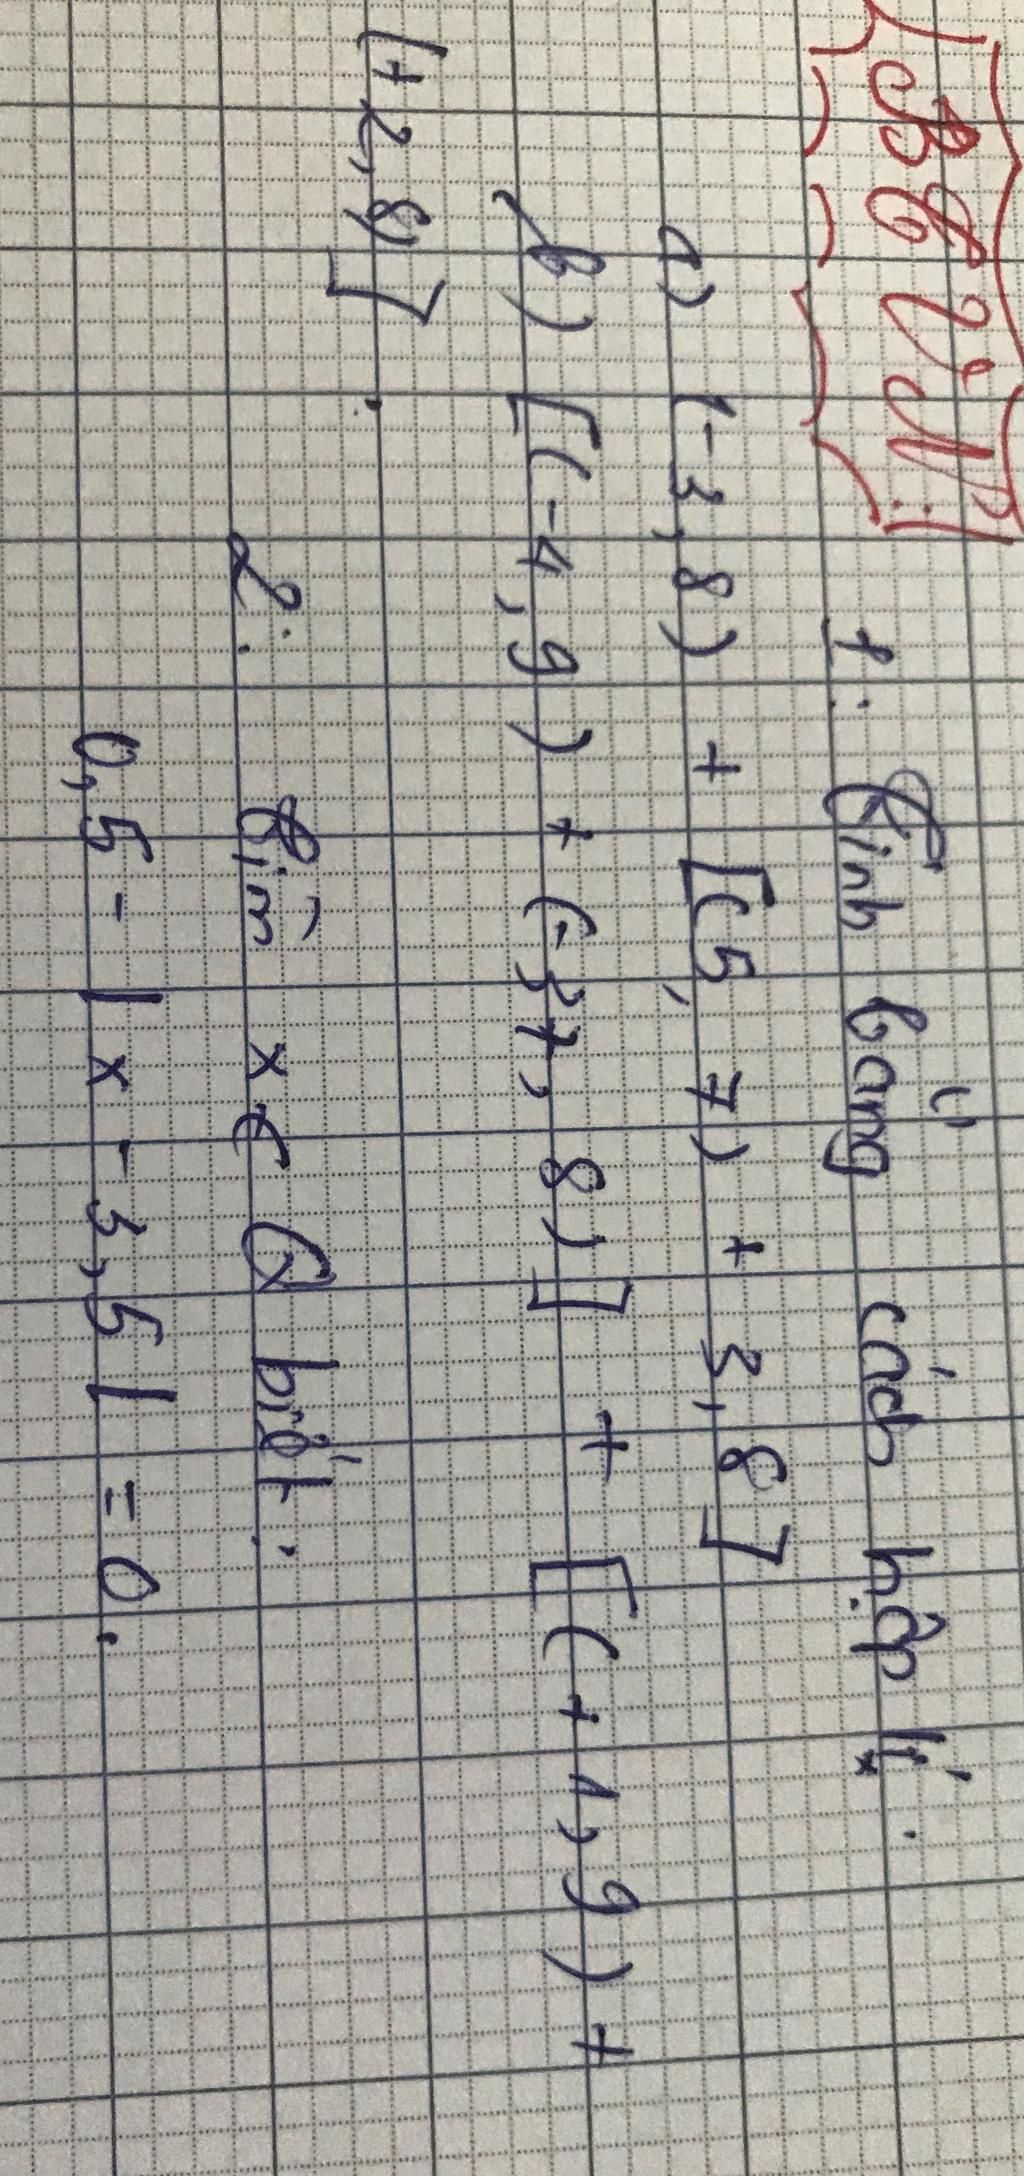 BTVN:
1: Tính bằng cách hợp lí.
a) (-3,8) + [(5,7) + 3,8]
b) [(-4,9) + (-37,8)] + [(+1,9) +
[+2,8].
2: Tìm x ∈ Q biết:
0,5 - |x - 3,5| = 0.